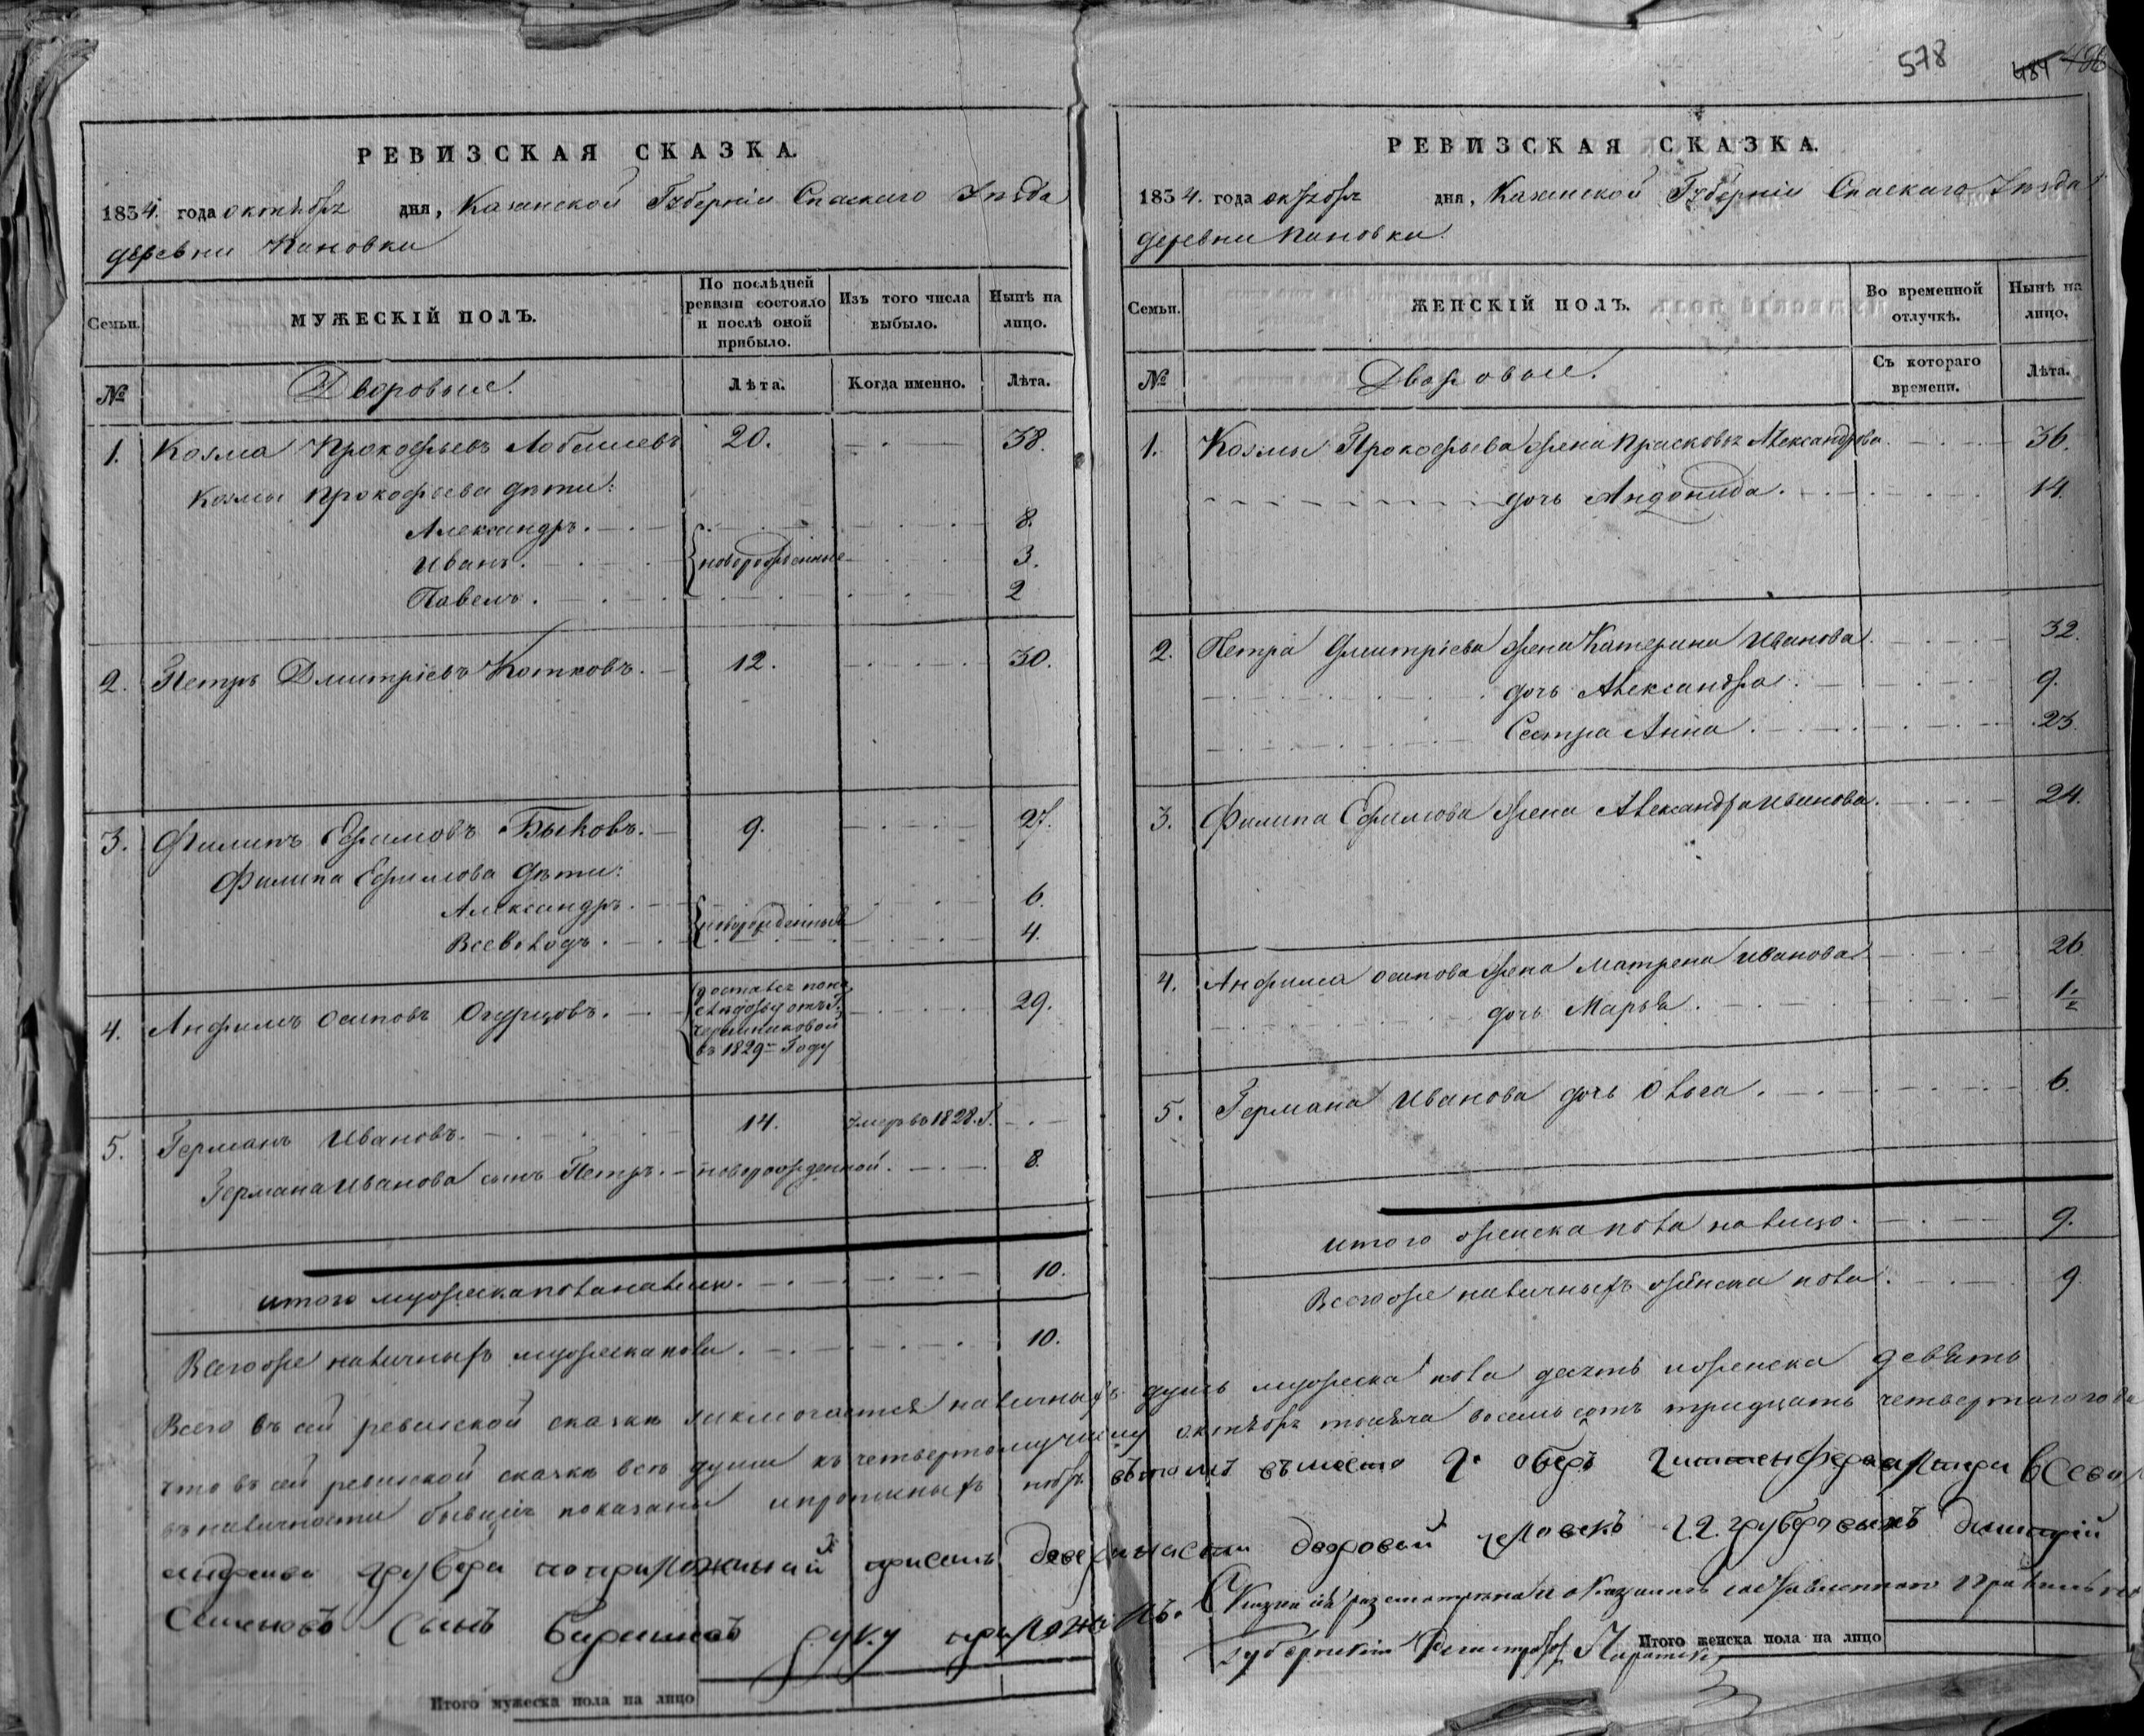 РЕВИЗСКАЯ СКАЗКА.
1834. года октября дня, Казанской Губерніи Спаскаго Уѣзда
деревни Пановки
Семьи.
МУЖЕСКІЙ ПОЛЪ.
По послѣдней ревизіи состояло и послѣ оной прибыло.
Изъ того числа выбыло.
Нынѣ на лицо.
№
Дворовые.
Лѣта.
Когда именно.
Лѣта.
1. Козма Прокофьевъ 20. 38.
Козмы Прокофьева дѣти:
Александръ. 8.
Иванъ. новорожденные 3.
Павелъ. 2
2. Петръ Дмитріевъ Котковъ. 12. 30.
3. Филипъ Ефимовъ Быковъ. 9. 27.
Филипа Ефимова дѣти:
Александръ. 6.
новорожденные
Всеволодъ. 4.
4. Анфимъ Осиповъ Огурцовъ. 29.
въ 1829м Году
5. Германъ Ивановъ. 14. умеръ въ 1828. Г.
Германа Иванова сынъ Петръ. новорожденной. 8.
итого мужеска пола налицо. 10.
Всего же наличныхъ мужеска пола. 10.
578
484 486
РЕВИЗСКАЯ СКАЗКА.
1834. года октября дня, Казанской Губерніи Спаскаго Уѣзда
деревни Пановки.
Семьи.
ЖЕНСКІЙ ПОЛЪ.
Во временной отлучкѣ.
Нынѣ на лицо.
№
Дворовые.
Съ котораго времени.
Лѣта.
1. Козмы Прокофьева жена Прасковья Александрова 36.
дочь 14.
2. Петра Дмитріева жена Катерина Иванова. 32.
дочь Александра. 9.
Сестра Анна. 23.
3. Филипа Ефимова жена Александра Иванова. 24.
4. Анфима Осипова жена Матрена Иванова 26.
дочь Марья. 1½
5. Германа Иванова дочь Ольга. 6.
итого женска пола налицо. 9.
Всего же наличныхъ женска пола. 9
Всего въ сей ревиской сказкѣ заключается наличныхъ душъ мужеска пола десять и женска девять
что въ сей ревиской сказкѣ всѣ души къ четвертому числу октября тысяча восемь сотъ тридцать четвертаго года
въ наличности бывшія показаны и прописныхъ нѣтъ въ томъ вместо Г. оберъ
грубера по приложенной дворовой человекъ Г.Г. груберовыхъ Дмитрій
Семеновъ Сынъ руку приложилъ.
Сказка сія разсмотрена и оказалась составленною правильно
Губернскій
Итого мужеска пола на лицо
Итого женска пола на лицо